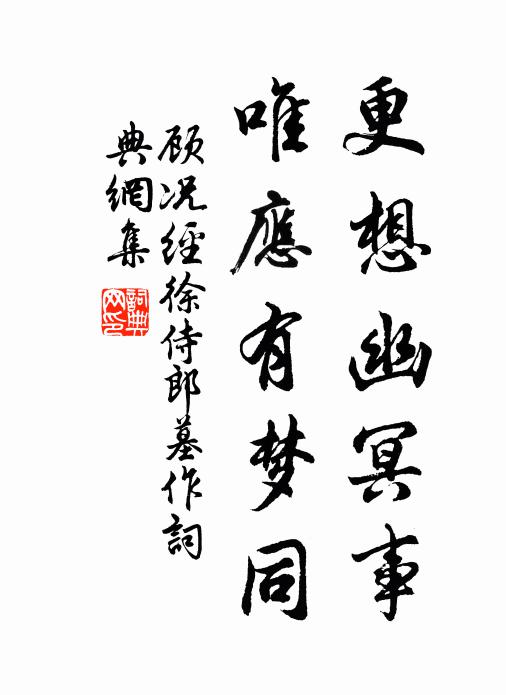 更想幽冥事
唯應有梦同
顾况經徐侍郎墓作詞
典網集
詞典
网印